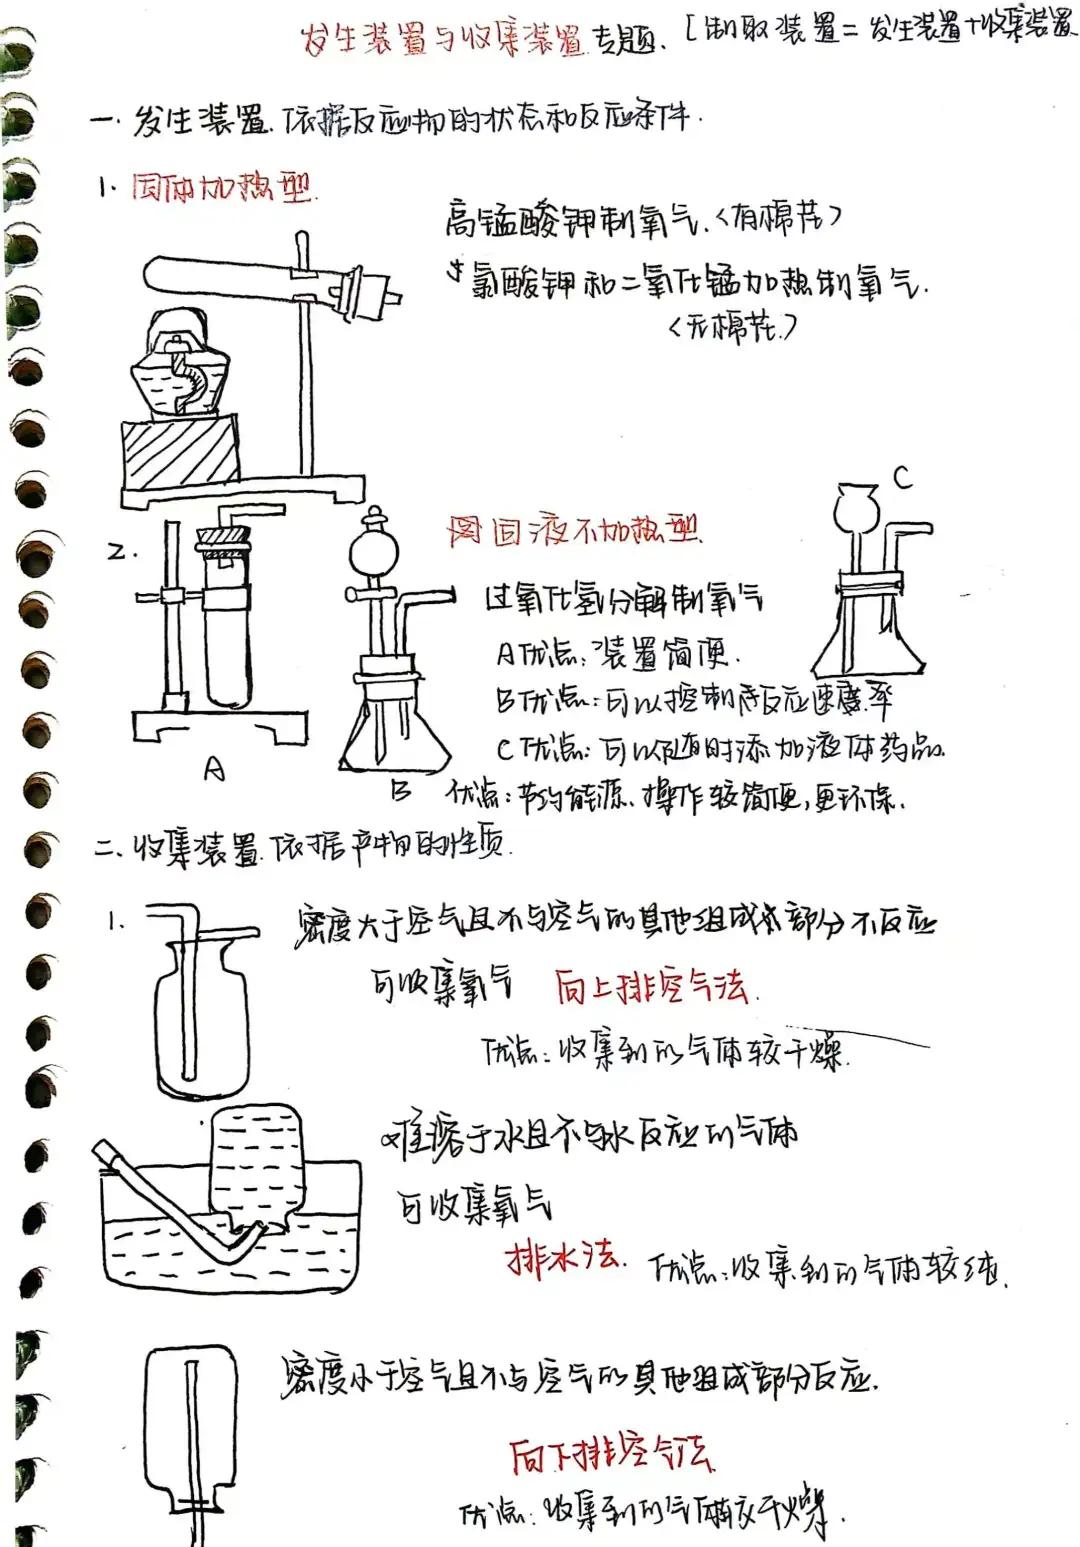 发生装置与收集装置专题. [制取装置=发生装置+收集装置
一. 发生装置. 依据反应物的状态和反应条件.
1. 固体加热型.
高锰酸钾制氧气.<有棉花>
氯酸钾和二氧化锰加热制氧气.
<无棉花.>
C
2.
固液不加热型
过氧化氢分解制氧气
A优点: 装置简便.
B优点: 可以控制反应速率
C优点: 可以随时添加液体药品.
A
B
优点: 节约能源、操作较简便, 更环保.
二、收集装置. 依据产物的性质.
1.
密度大于空气且不与空气的其他组成部分不反应
可收集氧气 向上排空气法.
优点: 收集到的气体较干燥.
难溶于水且不与水反应的气体
可收集氧气
排水法. 优点: 收集到的气体较纯.
密度小于空气且不与空气的其他组成部分反应.
向下排空气法
优点: 收集到的气体较干燥.